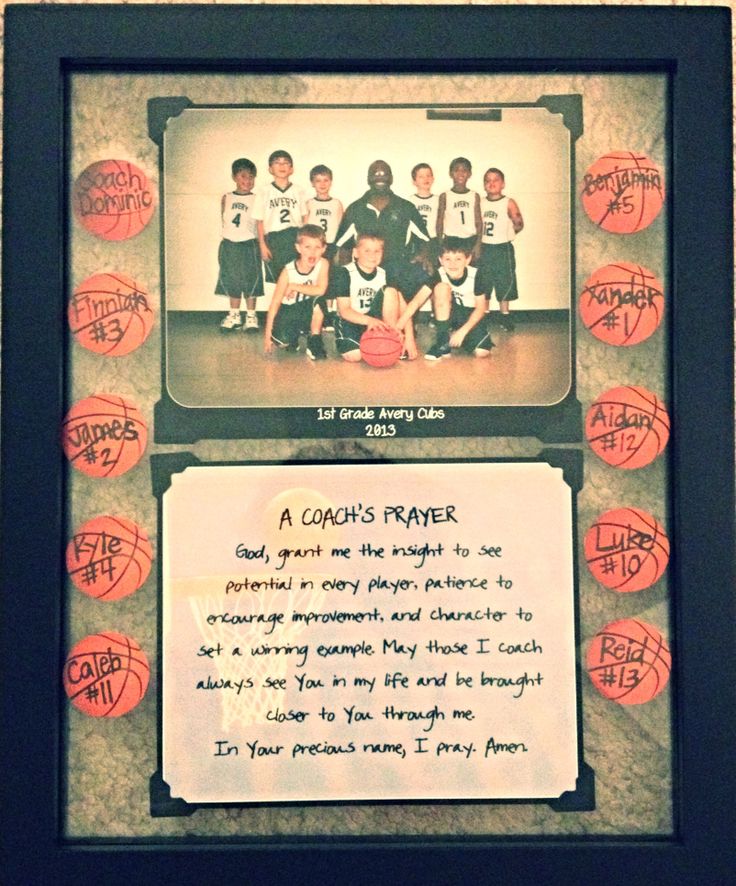 Coach
Dominic
Finnian
#3
James
#2
Kyle
#4
Caleb
#11
AVERY
4
AVERY
2
AVERY
3
AVERY
1
12
AVERY
13
1st Grade Avery Cubs
2013
A COACH'S PRAYER
God, grant me the insight to see
potential in every player, patience to
encourage improvement, and character to
set a winning example. May those I coach
always see You in my life and be brought
closer to You through me.
In Your precious name, I pray. Amen.
Benjamin
#5
Xander
#1
Aidan
#12
Luke
#10
Reid
#13